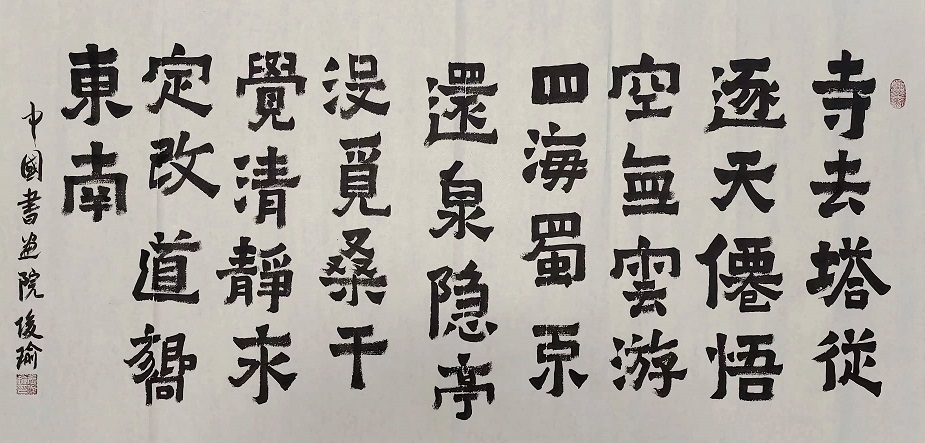 寺去塔從
逐天僊悟
空無雲游
四海蜀京
還泉隐亭
没覓桑干
覺清靜求
定改道嚮
東南
中國書畫院 俊瑜